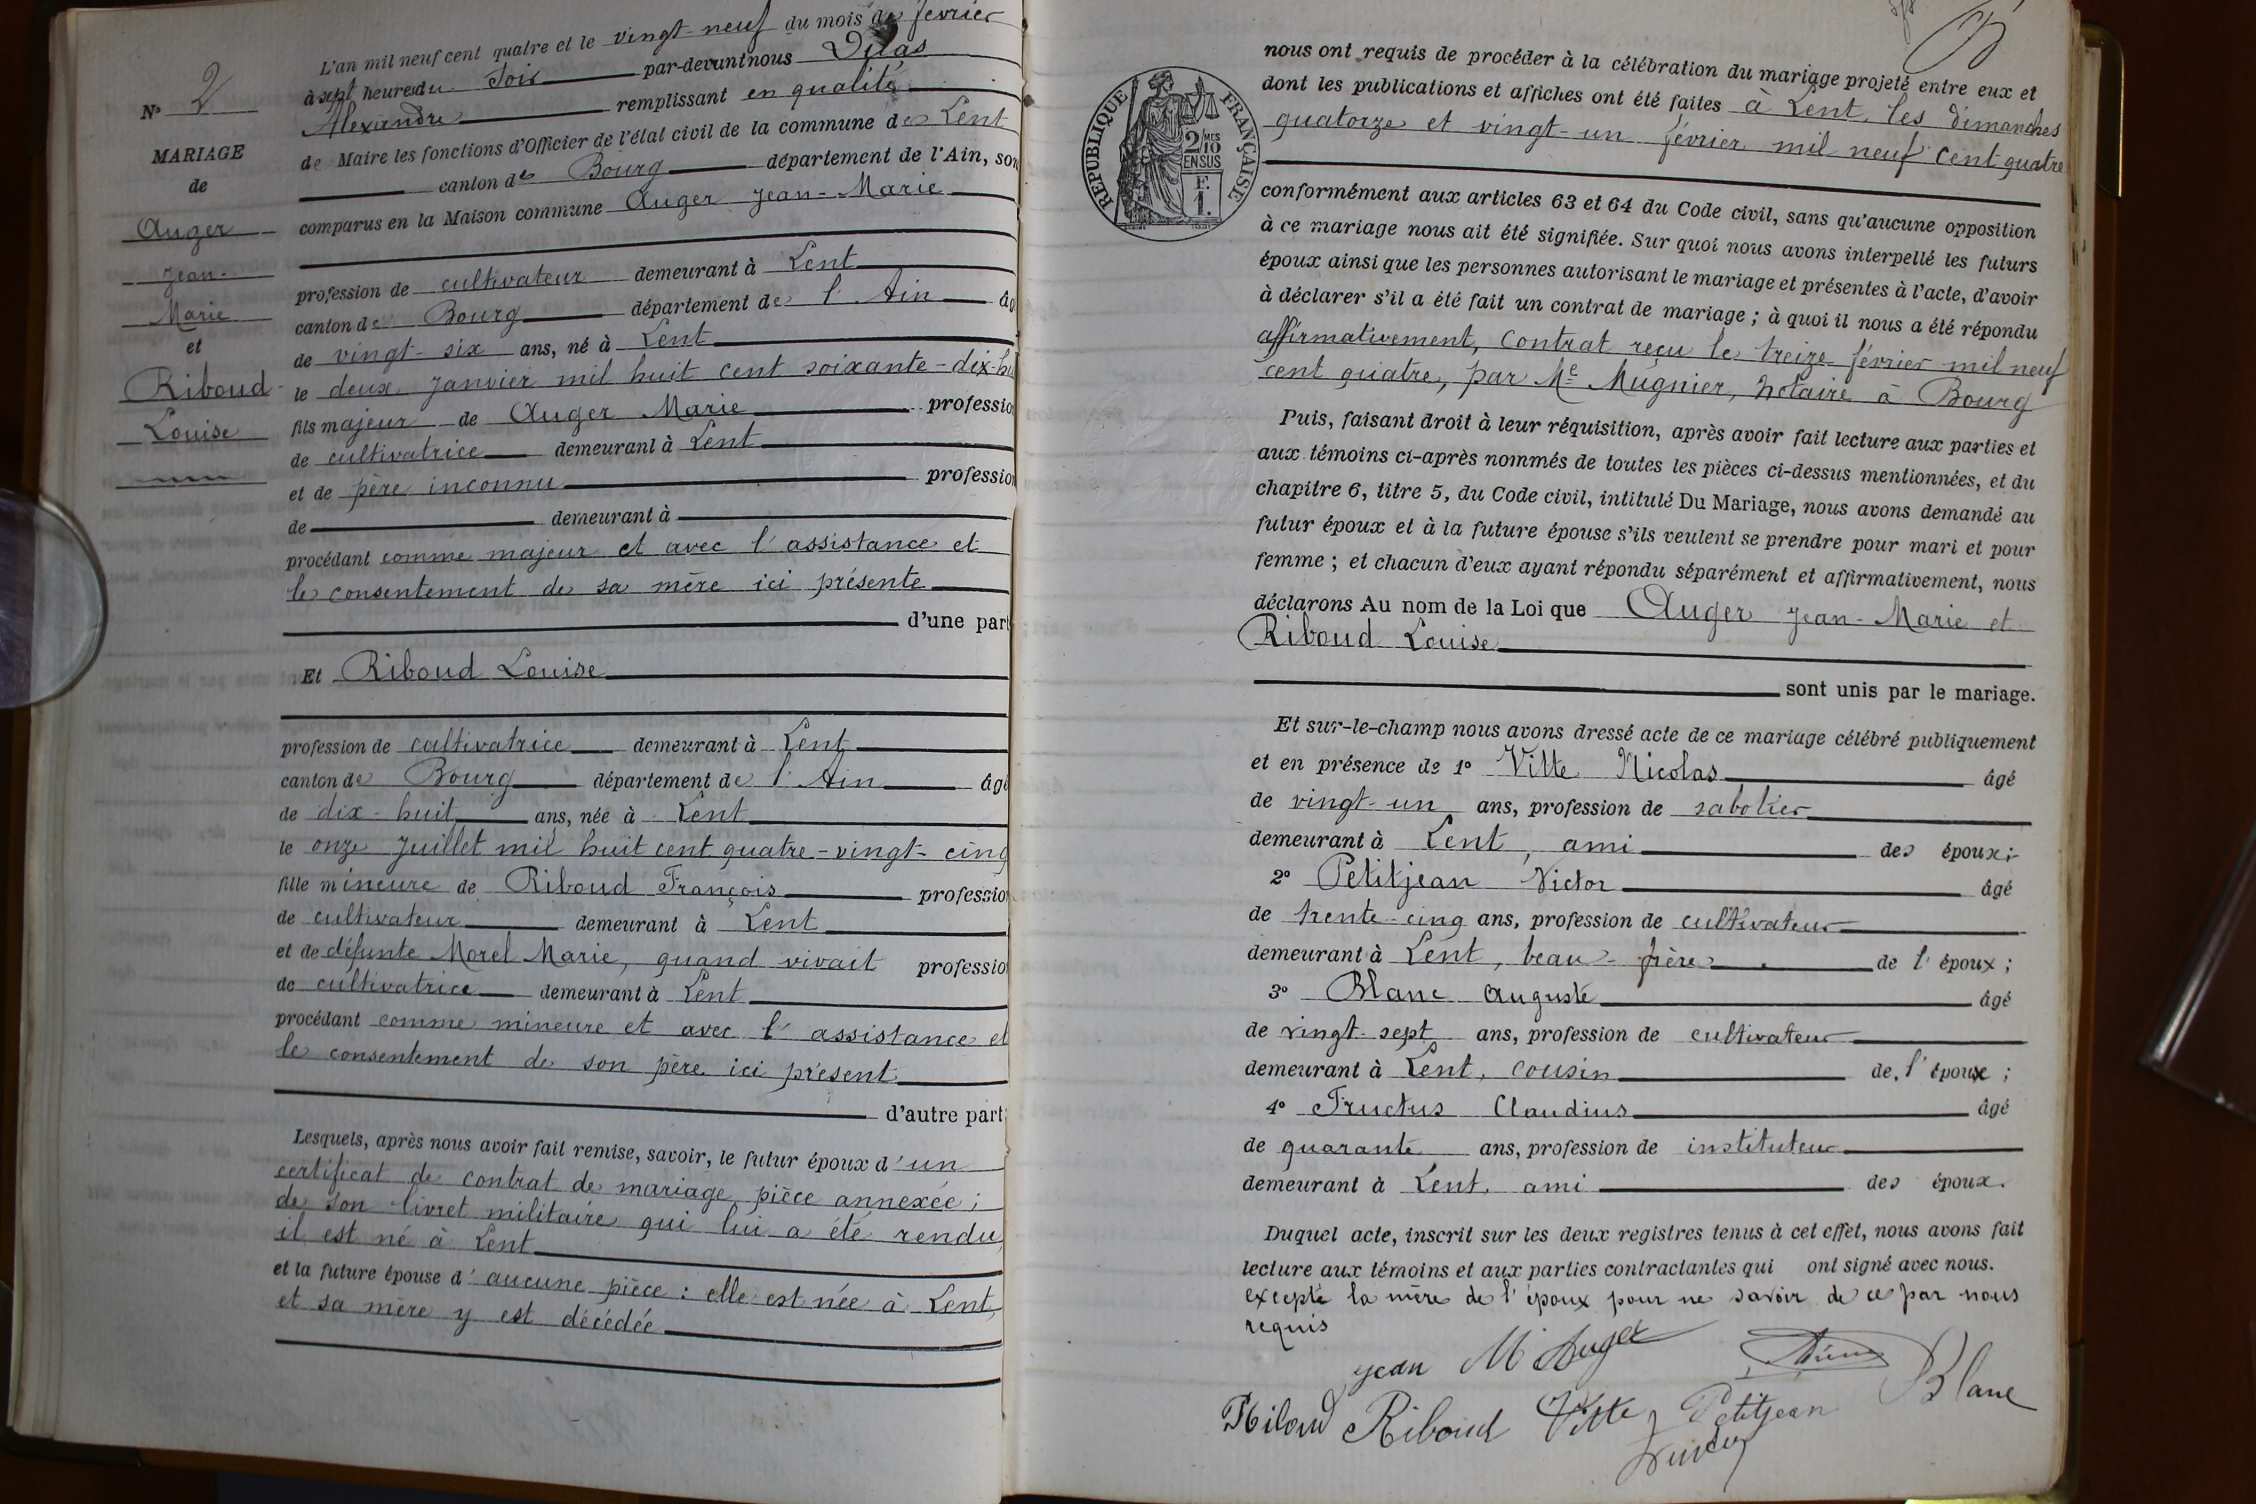 L'an mil neuf cent quatre et le vingt-neuf du mois de février
à sept heures du Soir par-devant nous
Alexandre remplissant en qualité
de Maire les fonctions d'Officier de l'état civil de la commune de Lent
canton de Bourg département de l'Ain, son
comparus en la Maison commune Auger Jean-Marie
profession de cultivateur demeurant à Lent
canton de Bourg département de l'Ain âg
de vingt-six ans, né à Lent
le deux Janvier mil huit cent soixante-dix-hu
fils majeur de Auger Marie profession
de cultivatrice demeurant à Lent
et de père inconnu profession
de demeurant à
procédant comme majeur et avec l'assistance et
le consentement de sa mère ici présente
d'une part
Et Riboud Louise
profession de cultivatrice demeurant à Lent
canton de Bourg département de l'Ain âgé
de dix-huit ans, née à Lent
le onze Juillet mil huit cent quatre-vingt-cinq
fille mineure de Riboud François profession
de cultivateur demeurant à Lent
et de défunte Morel Marie, quand vivait profession
de cultivatrice demeurant à Lent
procédant comme mineure et avec l'assistance et
le consentement de son père ici présent
d'autre part;
Lesquels, après nous avoir fait remise, savoir, le futur époux d'un
certificat de contrat de mariage, pièce annexée;
de son livret militaire qui lui a été rendu,
il est né à Lent
et la future épouse d'aucune pièce: elle est née à Lent,
et sa mère y est décédée
N° 2
MARIAGE
de
Auger
Jean-
Marie
et
Riboud
Louise
RÉPUBLIQUE FRANÇAISE
2/10 MES
EN SUS
F.
1.
nous ont requis de procéder à la célébration du mariage projeté entre eux et
dont les publications et affiches ont été faites à Lent, les dimanches
quatorze et vingt-un février mil neuf cent quatre
conformément aux articles 63 et 64 du Code civil, sans qu'aucune opposition
à ce mariage nous ait été signifiée. Sur quoi nous avons interpellé les futurs
époux ainsi que les personnes autorisant le mariage et présentes à l'acte, d'avoir
à déclarer s'il a été fait un contrat de mariage; à quoi il nous a été répondu
affirmativement, Contrat reçu le treize février mil neuf
cent quatre, par Me Mugnier, Notaire à Bourg
Puis, faisant droit à leur réquisition, après avoir fait lecture aux parties et
aux témoins ci-après nommés de toutes les pièces ci-dessus mentionnées, et du
chapitre 6, titre 5, du Code civil, intitulé Du Mariage, nous avons demandé au
futur époux et à la future épouse s'ils veulent se prendre pour mari et pour
femme; et chacun d'eux ayant répondu séparément et affirmativement, nous
déclarons Au nom de la Loi que Auger Jean-Marie et
Riboud Louise
sont unis par le mariage.
Et sur-le-champ nous avons dressé acte de ce mariage célébré publiquement
et en présence de 1° Vitte Nicolas âgé
de vingt-un ans, profession de sabotier
demeurant à Lent, ami des époux;
2° Petitjean Victor âgé
de trente-cinq ans, profession de cultivateur
demeurant à Lent, beau-frère de l'époux;
3° Blanc Auguste âgé
de vingt-sept ans, profession de cultivateur
demeurant à Lent, cousin de l'époux;
4° Fructus Claudius âgé
de quarante ans, profession de instituteur
demeurant à Lent, ami des époux.
Duquel acte, inscrit sur les deux registres tenus à cet effet, nous avons fait
lecture aux témoins et aux parties contractantes qui ont signé avec nous.
excepté la mère de l'époux pour ne savoir de ce par nous
requis
Jean M Auger
Blanc
Riboud Riboud Vitte Petitjean